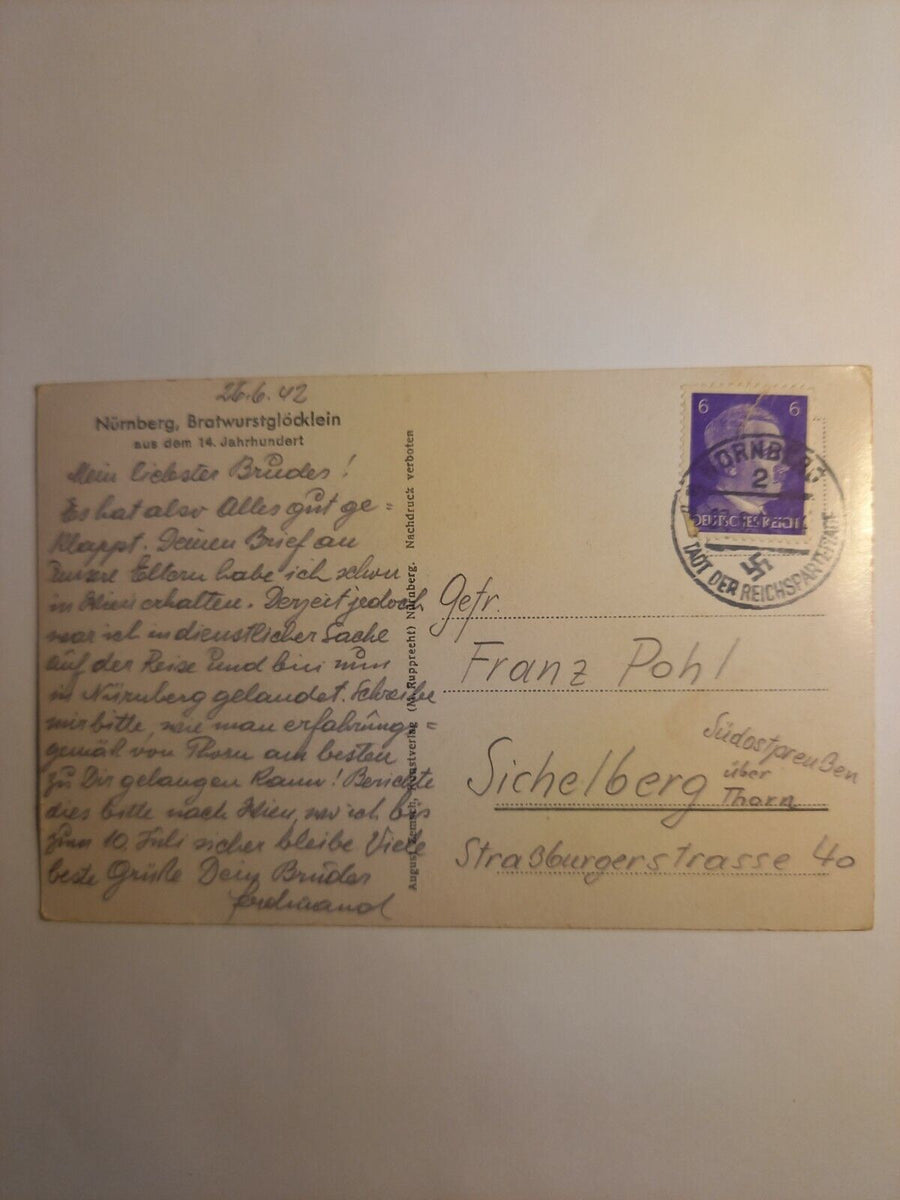 26.6.42
Nürnberg, Bratwurstglöcklein
aus dem 14. Jahrhundert
Mein liebster Bruder!
Es hat also Alles gut ge=
klappt. Deinen Brief an
unsere Eltern habe ich schon
in Wien erhalten. Derzeit jedoch
war ich in dienstlicher Sache
auf der Reise und bin nun
in Nürnberg gelandet. Schreibe
mir bitte, wie man erfahrungs=
gemäß von Thorn am besten
zu Dir gelangen kann! Berichte
dies bitte nach Wien, wo ich bis
zum 10. Juli sicher bleibe Viele
beste Grüße Dein Bruder
Ferdinand
August Kunstverlag (M. Rupprecht) Nürnberg. Nachdruck verboten
6 6
DEUTSCHES REICH
NÜRNBERG
2
STADT DER REICHSPARTEITAGE
Gefr.
Franz Pohl
Südostpreußen
Sichelberg über
Thorn
Straßburgerstrasse 40